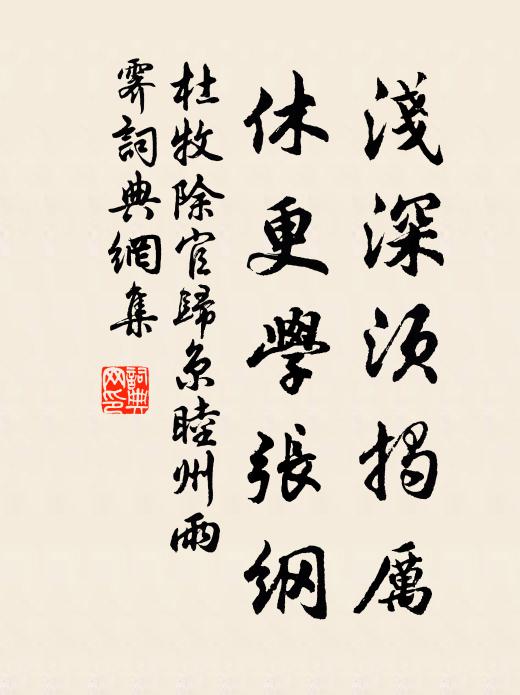 淺深須揭厲
休更學張綱
杜牧除官歸京睦州雨
霽詞典網集
詞典
网印